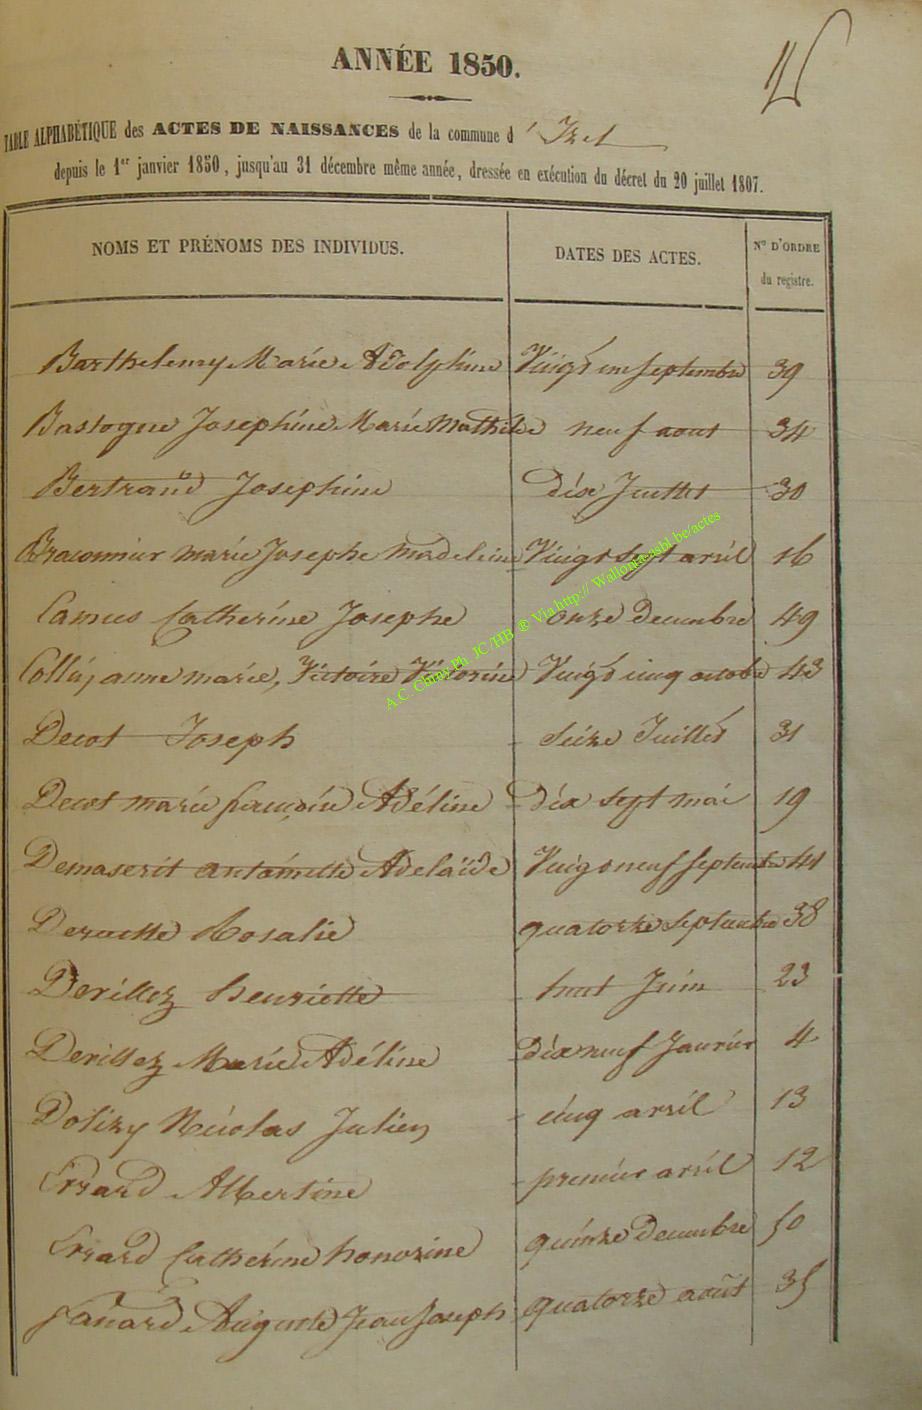 ANNÉE 1850.
TABLE ALPHABÉTIQUE des ACTES DE NAISSANCES de la commune d'Izel
depuis le 1er janvier 1850, jusqu'au 31 décembre même année, dressée en exécution du décret du 20 juillet 1807.
NOMS ET PRÉNOMS DES INDIVIDUS. DATES DES ACTES. N° D'ORDRE
du registre.
Barthelemy Marie Adolphine Vingt un septembre 39
Bastogne Joséphine Marie Mathilde neuf aout 34
Bertrand Josephine dix Juillet 30
Braconnier marie Josephe Madeleine Vingt Sept avril 16
Camus Catherine Josephe onze Decembre 49
anne marie, Victoire Victorine Vingt cinq octobre 43
Decot Joseph Seize Juillet 31
Decot marie françoise Adéline dix sept mai 19
Demaserit antoinette Adelaïde Vingt neuf septembre 41
Rosalie quatorze septembre 38
Devillez henriette huit Juin 23
Devillez Marie Adéline dix neuf Janvier 4
Dolizy Nicolas Julien cinq avril 13
Evrard Albertine premier avril 12
Evrard Catherine honorine quinze Decembre 50
Fanard Auguste Jean Joseph quatorze août 35
A.C. Chiny Ph. JC/HB ® Via http:// Wallonia-asbl.be/actes